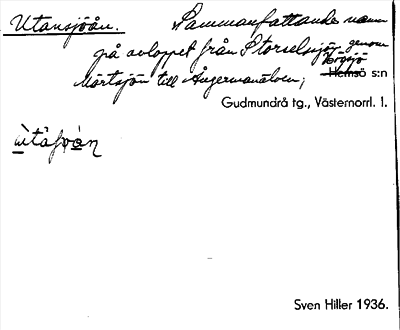 Utansjöån. Sammanfattande namn
på avloppet från Storselsjön genom
Mörtsjön till Ångermanälven; Högsjö
Hemsö s:n
Gudmundrå tg., Västernorrl. l.
Sven Hiller 1936.